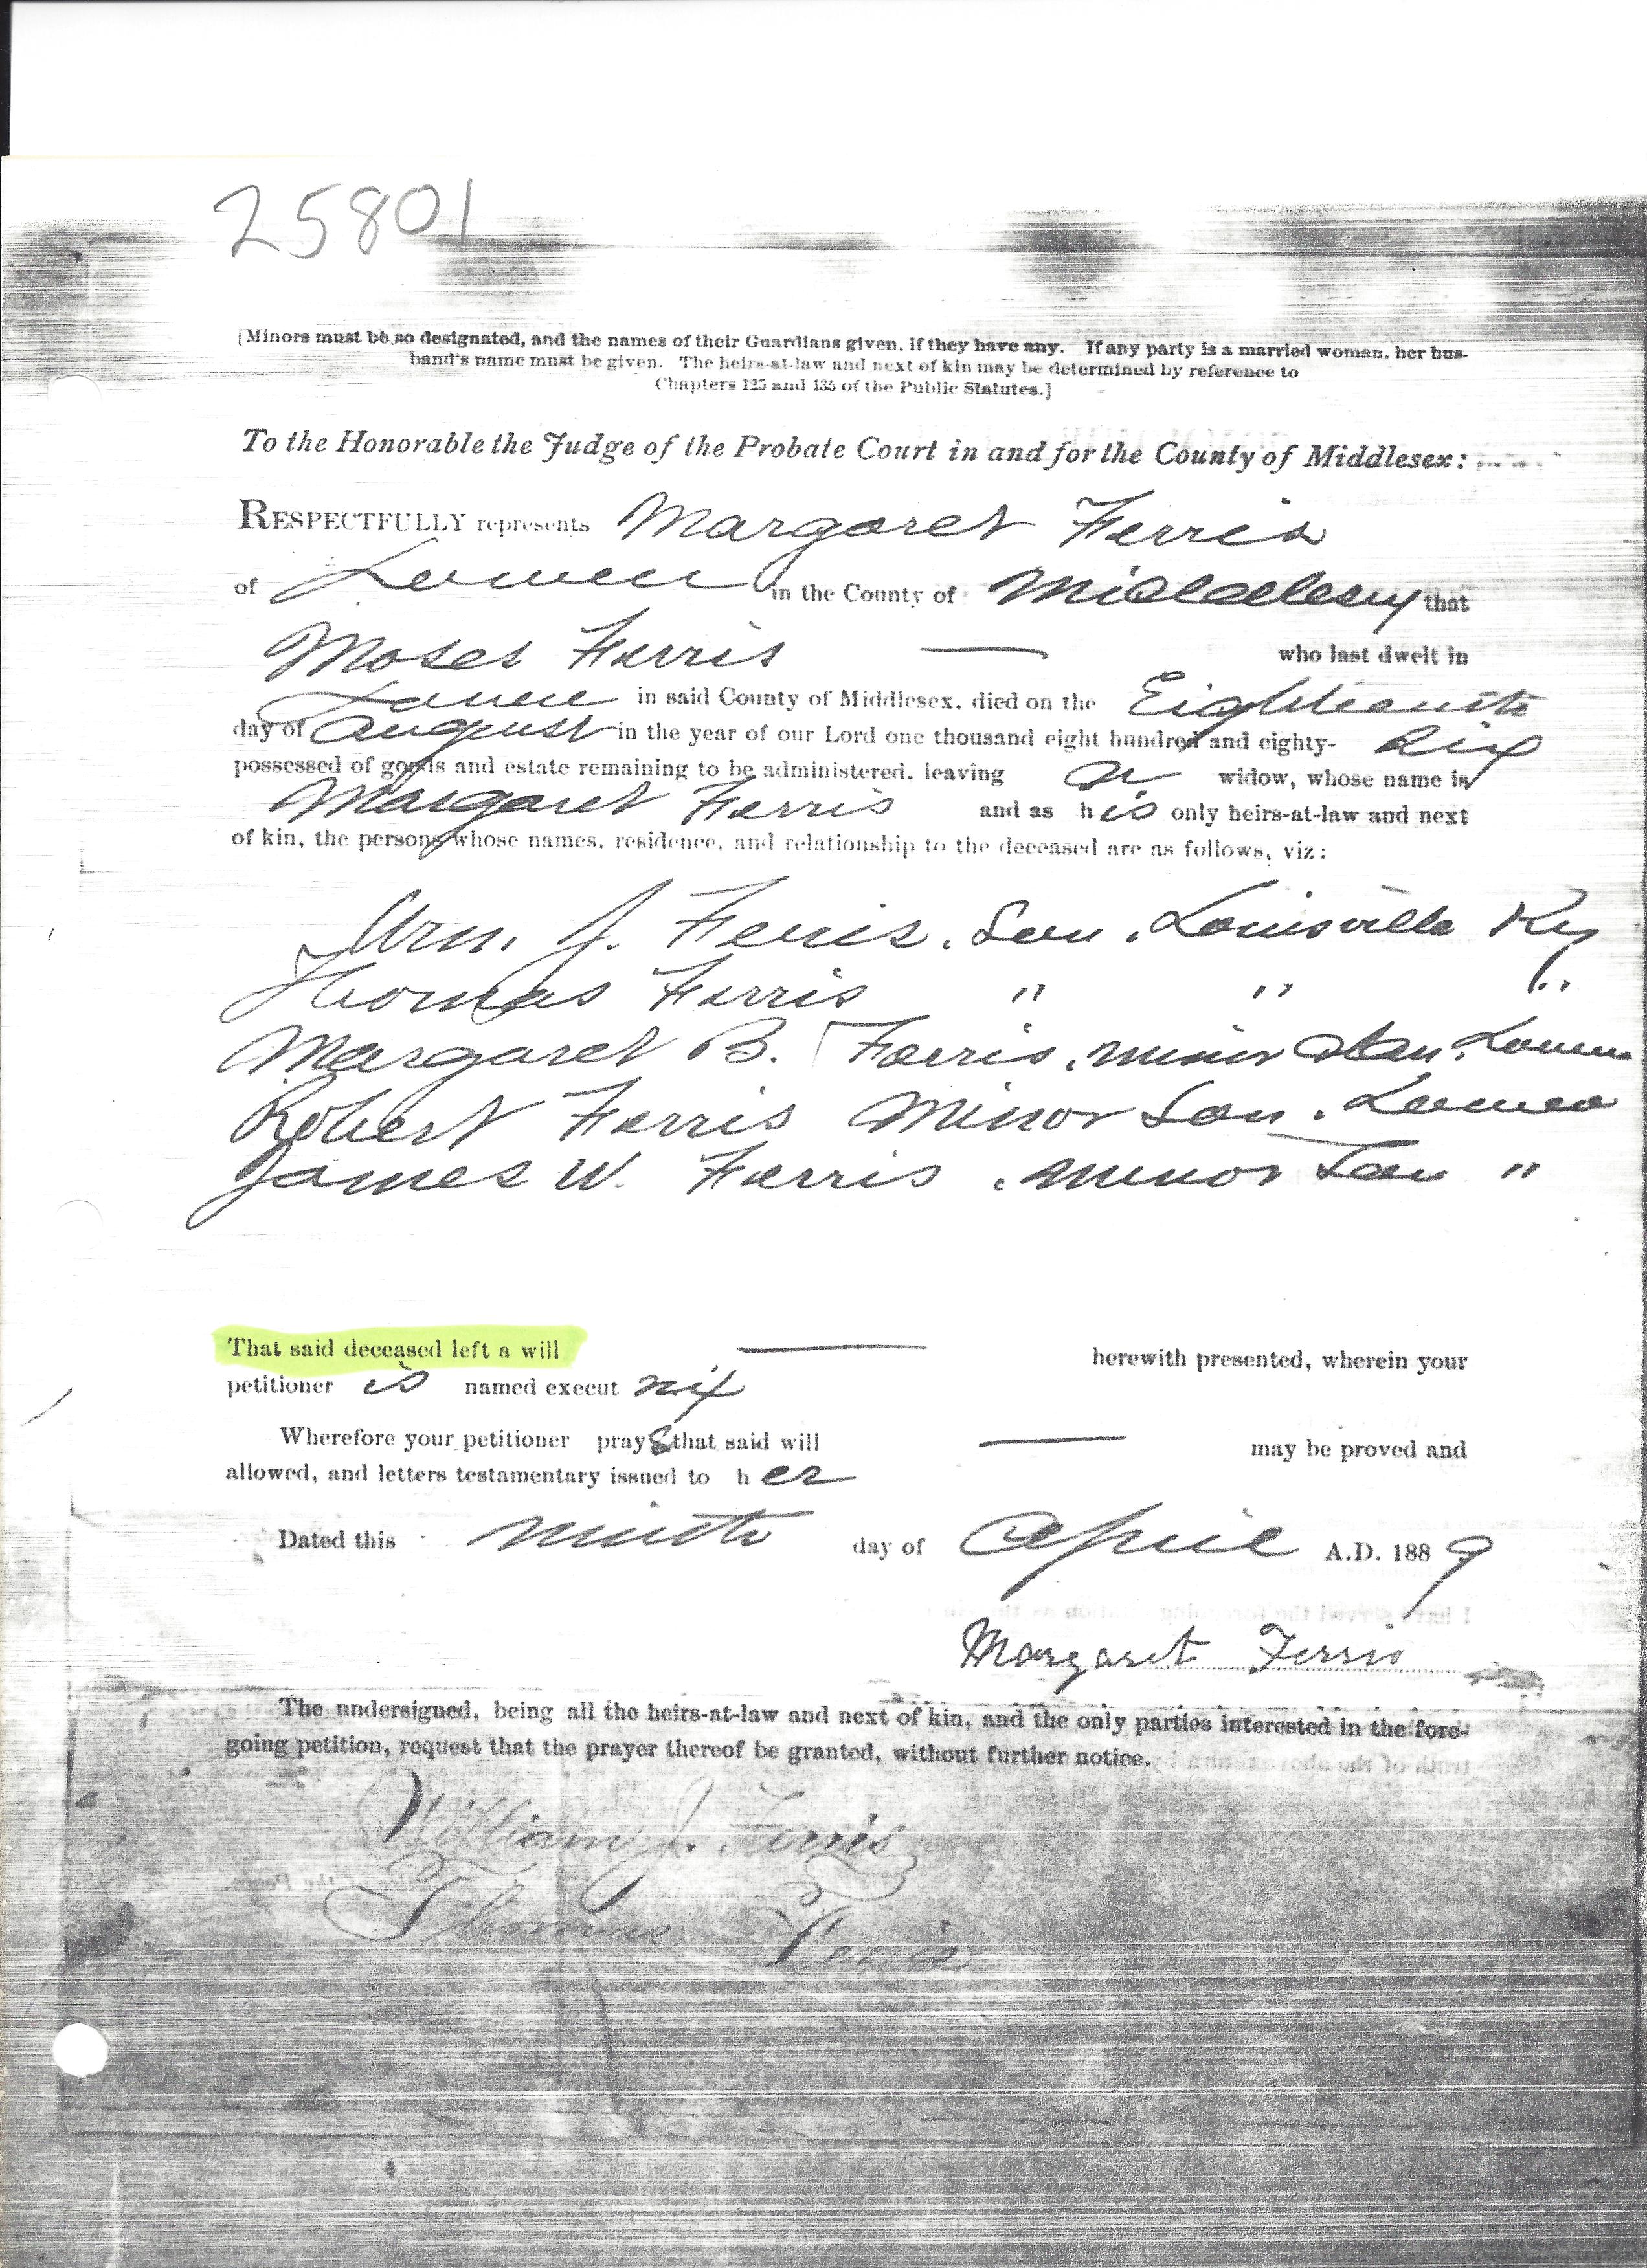 25801
[Minors must be so designated, and the names of their Guardians given, if they have any. If any party is a married woman, her hus-
band's name must be given. The heirs-at-law and next of kin may be determined by reference to
Chapters 125 and 135 of the Public Statutes.]
To the Honorable the Judge of the Probate Court in and for the County of Middlesex:
RESPECTFULLY represents Margaret Ferris
of Lowell in the County of Middlesex that
Moses Ferris — who last dwelt in
Lowell in said County of Middlesex, died on the Eighteenth
day of August in the year of our Lord one thousand eight hundred and eighty- Six
possessed of goods and estate remaining to be administered, leaving a widow, whose name is
Margaret Ferris and as his only heirs-at-law and next
of kin, the persons whose names, residence, and relationship to the deceased are as follows, viz:
Wm. J. Ferris. Son. Louisville Ky
Thomas Ferris " " "
Margaret B. Ferris. minor Dau. Lowell
Robert Ferris Minor Son. Lowell
James W. Ferris. minor Son "
That said deceased left a will — herewith presented, wherein your
petitioner is named executrix
Wherefore your petitioner prays that said will — may be proved and
allowed, and letters testamentary issued to her
Dated this ninth day of April A.D. 1889
Margaret Ferris
The undersigned, being all the heirs-at-law and next of kin, and the only parties interested in the fore-
going petition, request that the prayer thereof be granted, without further notice.
William J. Ferris
Thomas Ferris